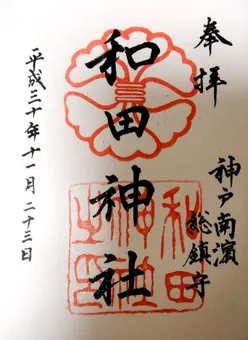 奉拝
神戸南濱
総鎮守
和田神社
平成三十年十一月二十三日
和田
神社
之印